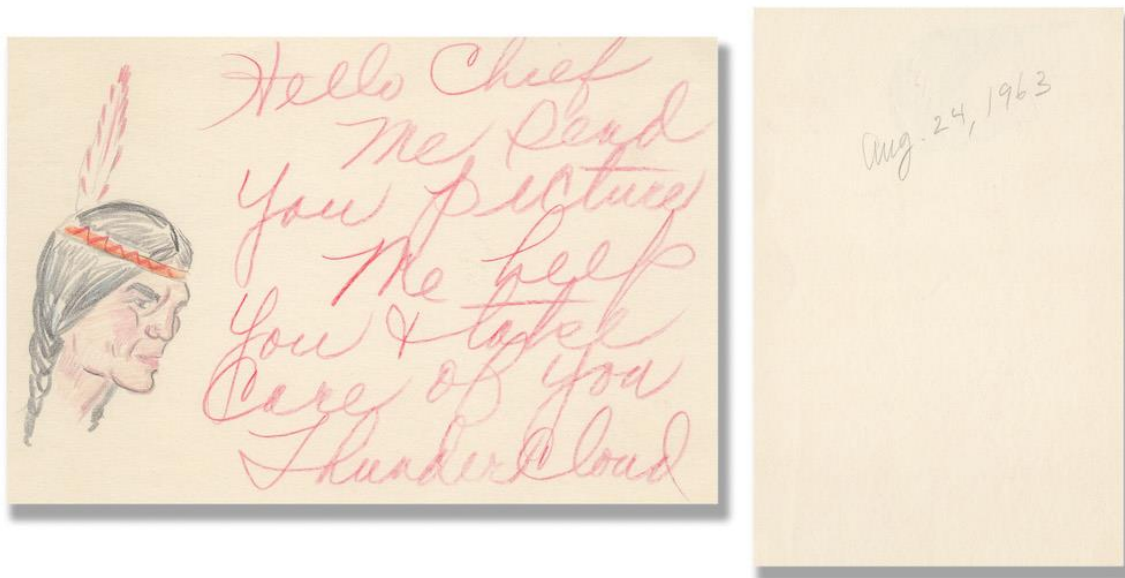 Hello Chief
Me Send
You picture
Me help
You & take
Care of you
ThunderCloud
Aug. 24, 1963